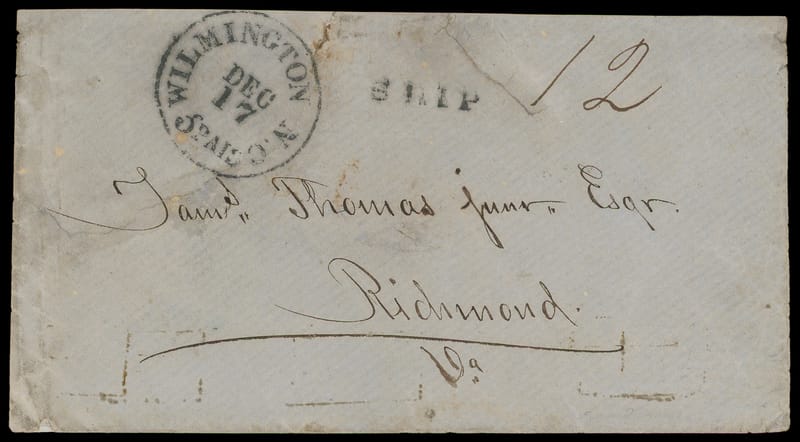 WILMINGTON N.C.
DEC
17
PAID
SHIP
12
Jams. Thomas junr. Esqr.
Richmond.
Va